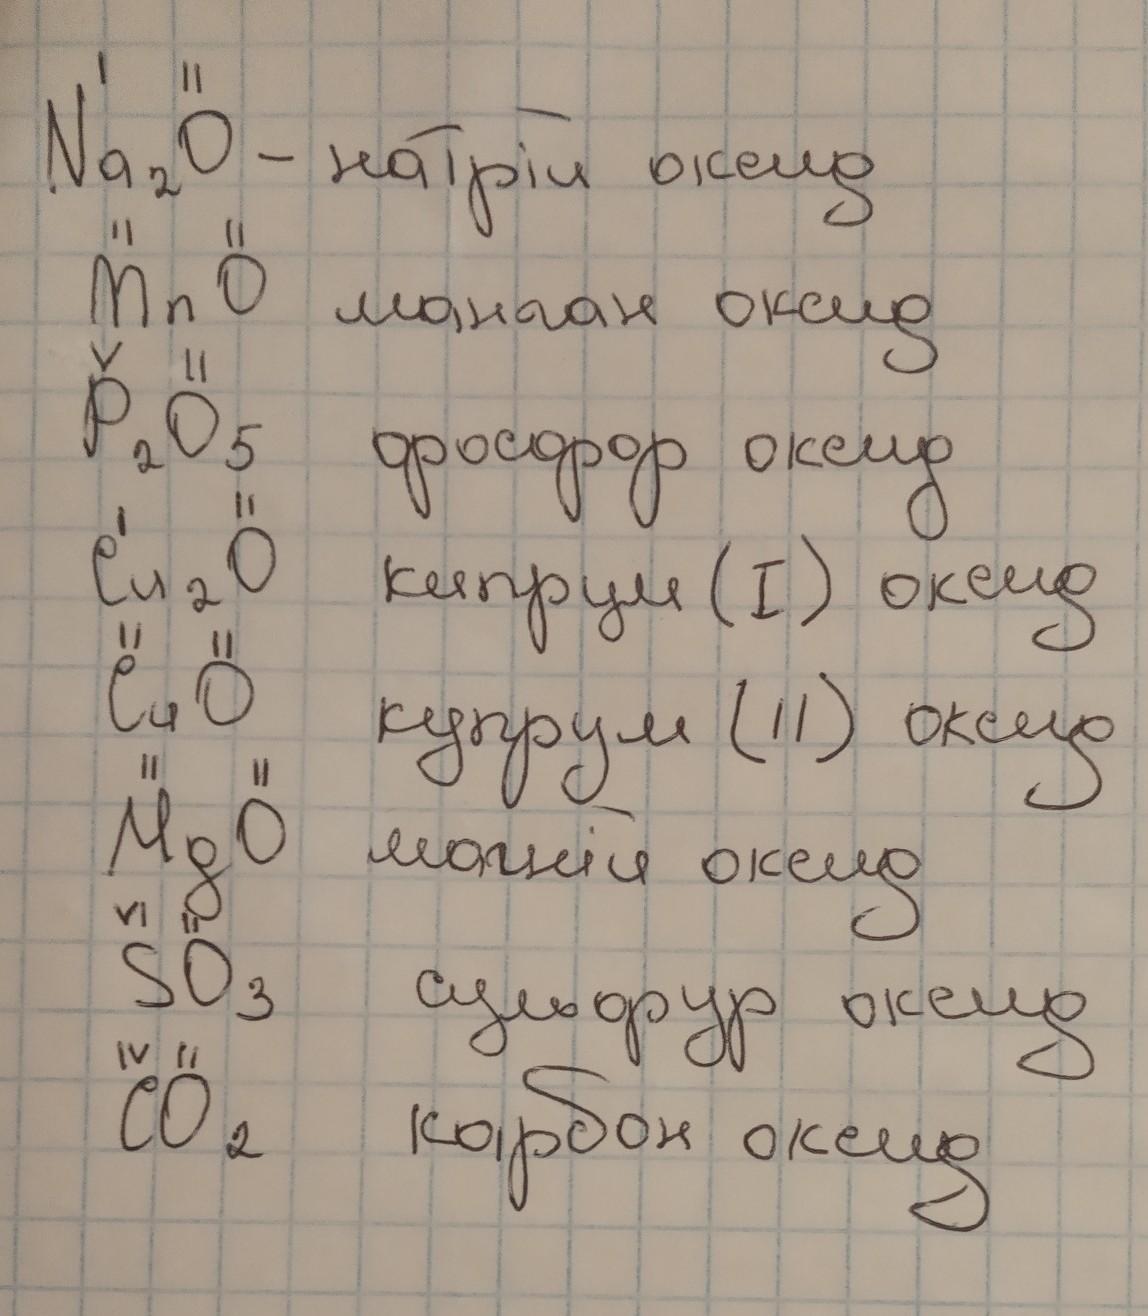 I II
Na₂O – натрій оксид
II II
MnO манган оксид
V II
P₂O₅ фосфор оксид
I II
Cu₂O купрум (I) оксид
II II
CuO купрум (II) оксид
II II
MgO магній оксид
VI II
SO₃ сульфур оксид
IV II
CO₂ карбон оксид